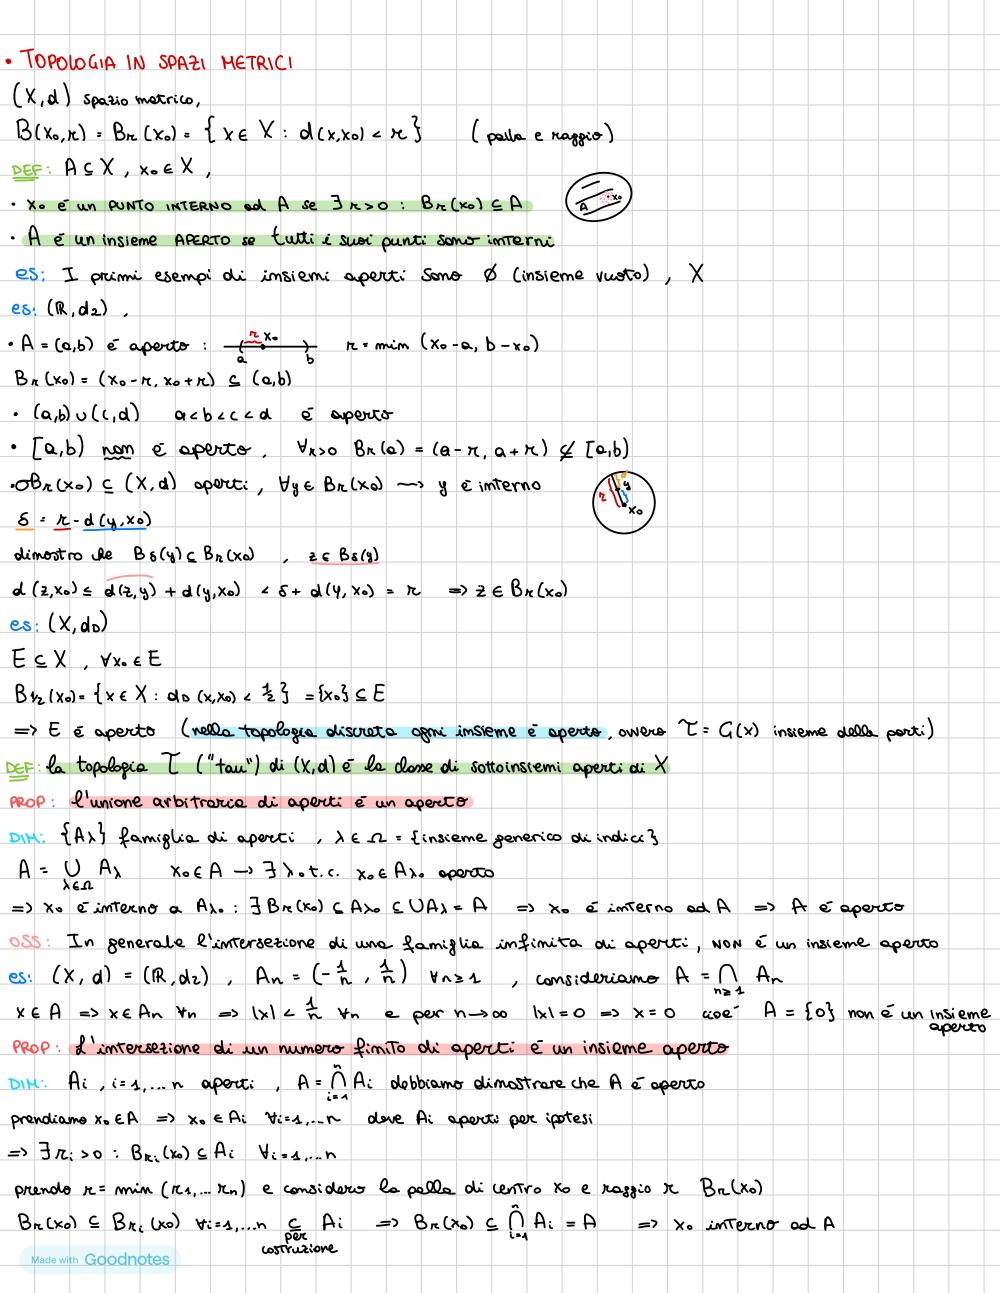 • TOPOLOGIA IN SPAZI METRICI
(X,d) spazio metrico,
B(x₀,r) = Br(x₀) = { x ∈ X : d(x,x₀) < r } (palla e raggio)
DEF: A ⊆ X , x₀ ∈ X ,
• x₀ è un PUNTO INTERNO ad A se ∃ r>0 : Br(x₀) ⊆ A
A x₀
• A è un insieme APERTO se tutti i suoi punti sono interni
es: I primi esempi di insiemi aperti sono ∅ (insieme vuoto) , X
es: (ℝ, d₂) ,
• A = (a,b) è aperto : r x₀ a b r = min (x₀-a, b-x₀)
Br(x₀) = (x₀-r, x₀+r) ⊆ (a,b)
• (a,b) ∪ (c,d) a<b<c<d è aperto
• [a,b) non è aperto , ∀r>0 Br(a) = (a-r, a+r) ⊈ [a,b)
• Br(x₀) ⊆ (X,d) aperti , ∀y ∈ Br(x₀) ⟿ y è interno
r y x₀
δ = r - d(y,x₀)
dimostro che Bδ(y) ⊆ Br(x₀) , z ∈ Bδ(y)
d(z,x₀) ≤ d(z,y) + d(y,x₀) < δ + d(y,x₀) = r => z ∈ Br(x₀)
es: (X,d_D)
E ⊆ X , ∀x₀ ∈ E
B½(x₀) = {x ∈ X : d_D (x,x₀) < ½ } = {x₀} ⊆ E
=> E è aperto (nella topologia discreta ogni insieme è aperto, ovvero τ = G(x) insieme delle parti)
DEF: la topologia τ ("tau") di (X,d) è la classe di sottoinsiemi aperti di X
PROP: l'unione arbitraria di aperti è un aperto
DIM: {Aλ} famiglia di aperti , λ ∈ Ω = {insieme generico di indici}
A = ∪ λ∈Ω Aλ x₀ ∈ A → ∃ λ₀ t.c. x₀ ∈ Aλ₀ aperto
=> x₀ è interno a Aλ₀ : ∃ Br(x₀) ⊆ Aλ₀ ⊆ ∪Aλ = A => x₀ è interno ad A => A è aperto
OSS: In generale l'intersezione di una famiglia infinita di aperti, NON è un insieme aperto
es: (X, d) = (ℝ, d₂) , An = (-1/n , 1/n) ∀n≥1 , consideriamo A = ∩ n≥1 An
x ∈ A => x ∈ An ∀n => |x| < 1/n ∀n e per n→∞ |x|=0 => x=0 cioè A = {0} non è un insieme aperto
PROP: L'intersezione di un numero finito di aperti è un insieme aperto
DIM: Ai , i=1,...n aperti , A = ∩ⁿ i=1 Ai dobbiamo dimostrare che A è aperto
prendiamo x₀ ∈ A => x₀ ∈ Ai ∀i=1,...n dove Ai aperti per ipotesi
=> ∃ ri >0 : Bri(x₀) ⊆ Ai ∀i=1,...n
prendo r = min (r1,... rn) e considero la palla di centro x₀ e raggio r Br(x₀)
Br(x₀) ⊆ Bri(x₀) ∀i=1,...n ⊆ per costruzione Ai => Br(x₀) ⊆ ∩ⁿ i=1 Ai = A => x₀ interno ad A
Made with Goodnotes